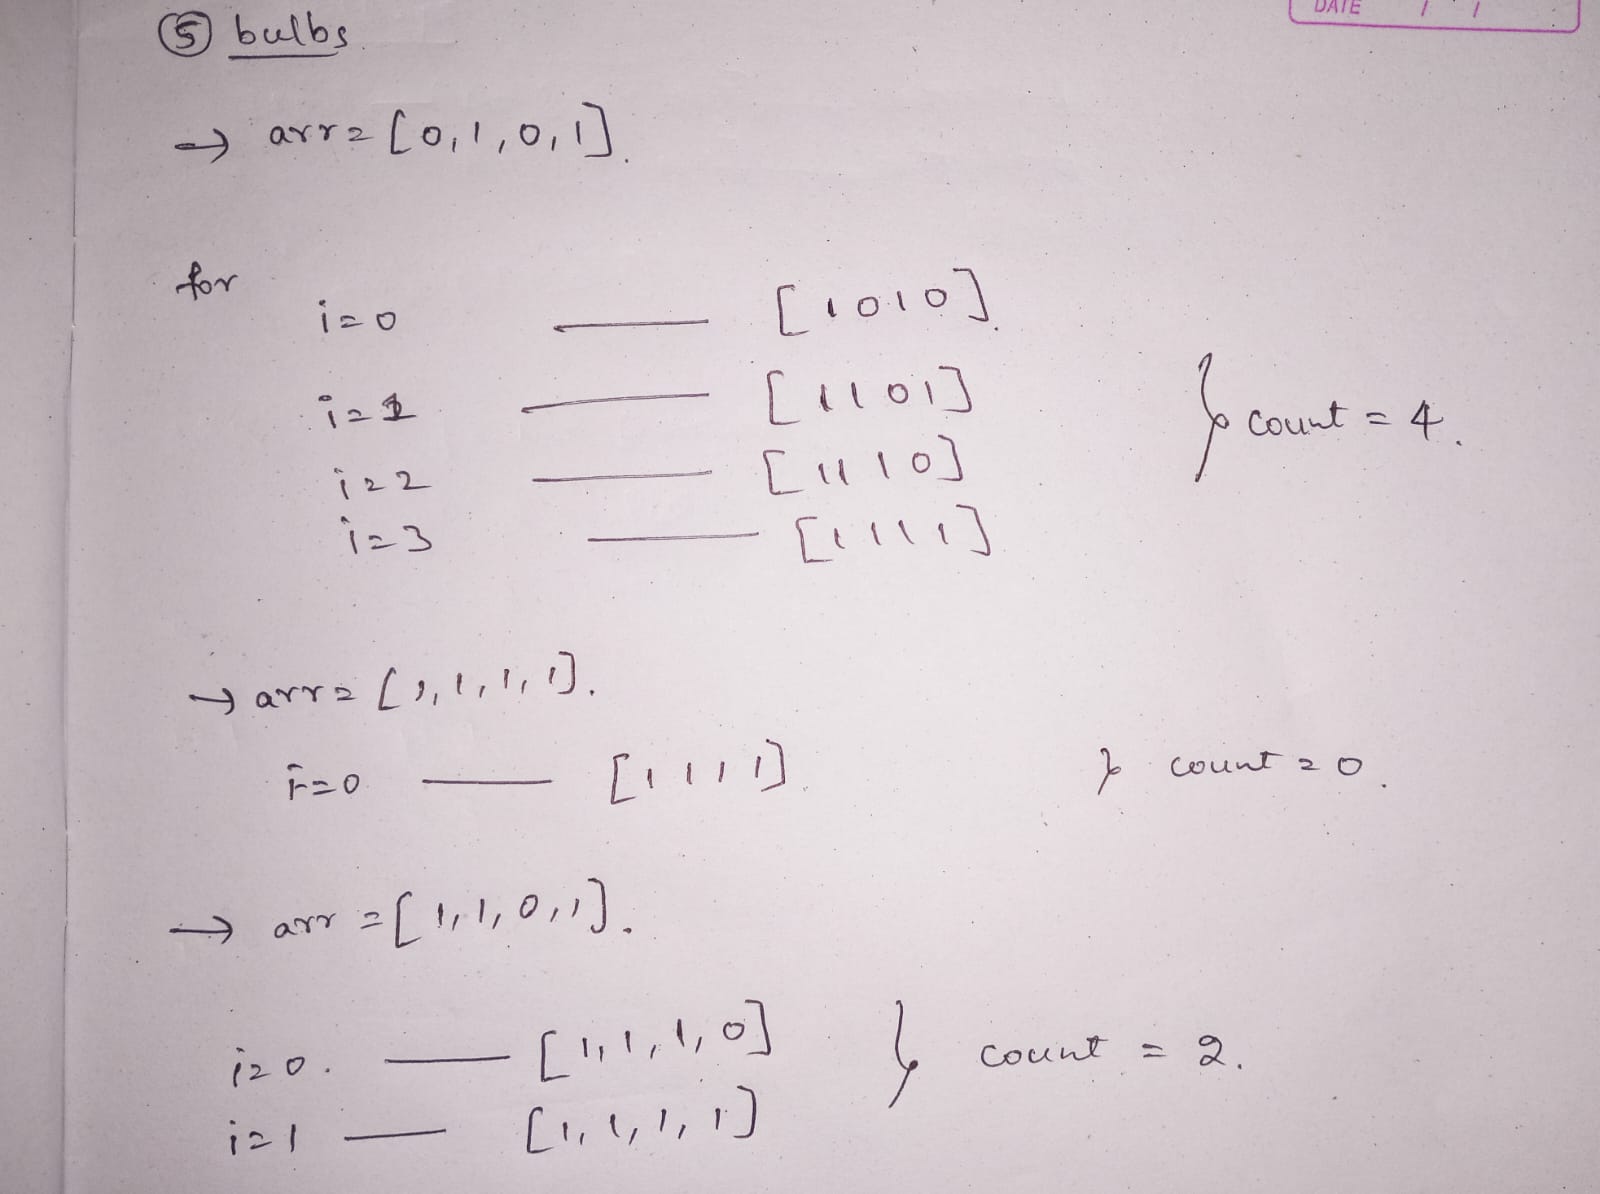 DATE / /
⑤ bulbs
→ arr = [0,1,0,1].
for
i=0 — [1010].
i=1 — [1101]
i=2 — [1110]
i=3 — [1111]
} count = 4.
→ arr = [1,1,1,1].
i=0 — [1111]. } count = 0.
→ arr = [1,1,0,1].
i=0. — [1,1,1,0] } count = 2.
i=1 — [1,1,1,1]